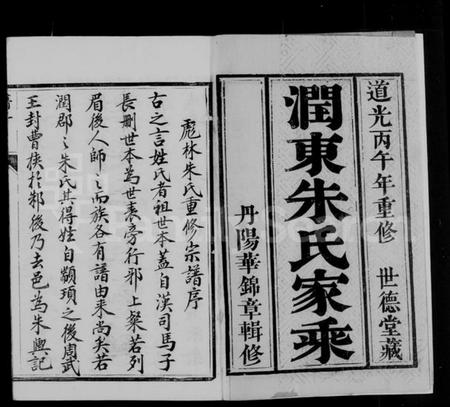 道光丙午年重修　世德堂藏
潤東朱氏家乘
丹陽華錦章輯修
彪林朱氏重修宗譜序
古之言姓氏者祖世本蓋自漢司馬子
長刪世本為世表旁行邪上粲若列
眉後人師之而族各有譜由來尚矣若
潤郡之朱氏其得姓自顓頊之後周武
王封曹挾於邾後乃去邑為朱與記